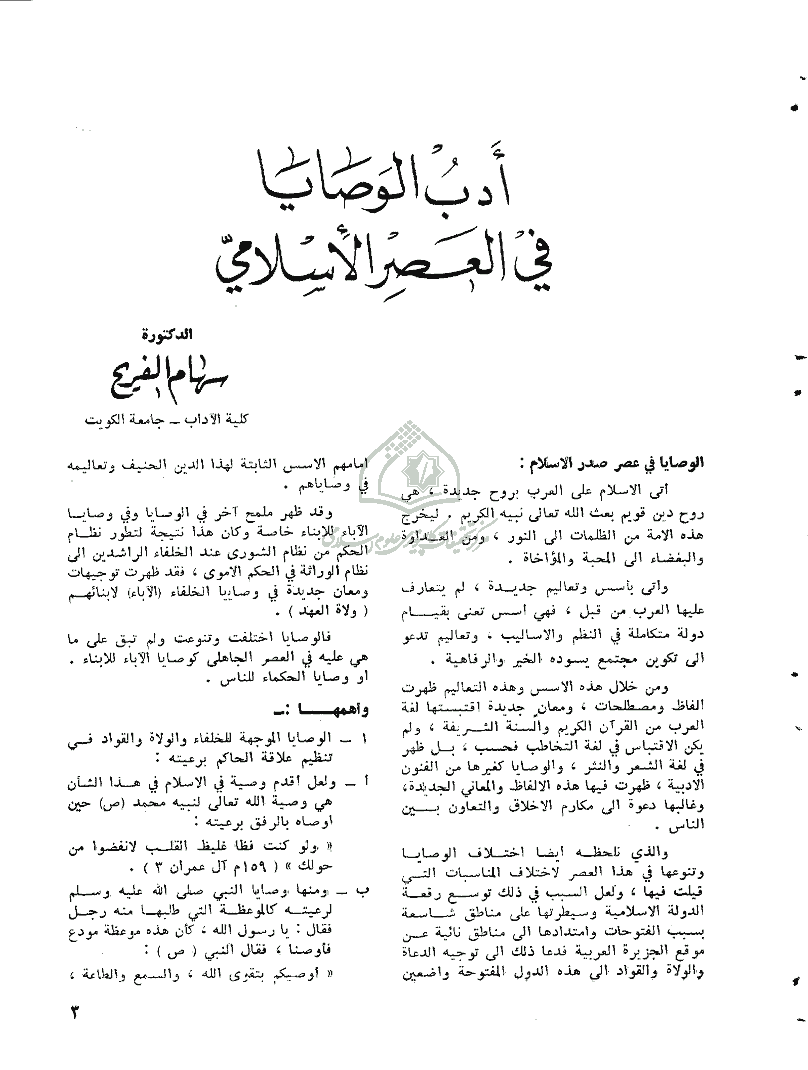 أَدبُ الوَصَايَا
فيْ العَصِرِ الأسْلاميّ
الدكتورة
سهام الفريح
كلية الآداب ــ جامعة الكويت
الوصايا في عصر صدر الاسلام :
أتى الاسلام على العرب بروح جديدة ، هي
روح دين قويم بعث الله تعالى نبيه الكريم . ليخرج
هذه الامة من الظلمات الى النور ، ومن العداوة
والبغضاء الى المحبة والمؤاخاة .
وأتى بأسس وتعاليم جديدة ، لم يتعارف
عليها العرب من قبل ، فهي اسس تعنى بقيام
دولة متكاملة في النظم والاساليب ، وتعاليم تدعو
الى تكوين مجتمع يسوده الخير والرفاهية .
ومن خلال هذه الاسس وهذه التعاليم ظهرت
الفاظ ومصطلحات ، ومعانٍ جديدة اقتبستها لغة
العرب من القرآن الكريم والسنة الشريفة ، ولم
يكن الاقتباس في لغة التخاطب فحسب ، بل ظهر
في لغة الشعر والنثر ، والوصايا كغيرها من الفنون
الادبية ، ظهرت فيها هذه الالفاظ والمعاني الجديدة،
وغالبها دعوة الى مكارم الاخلاق والتعاون بين
الناس .
والذي نلحظه ايضا اختلاف الوصايا
وتنوعها في هذا العصر لاختلاف المناسبات التي
قيلت فيها ، ولعل السبب في ذلك توسع رقعة
الدولة الاسلامية وسيطرتها على مناطق شاسعة
بسبب الفتوحات وامتدادها الى مناطق نائية عن
موقع الجزيرة العربية فدعا ذلك الى توجيه الدعاة
والولاة والقواد الى هذه الدول المفتوحة واضعين
امامهم الاسس الثابتة لهذا الدين الحنيف وتعاليمه
في وصاياهم .
وقد ظهر ملمح آخر في الوصايا وفي وصايا
الآباء للابناء خاصة وكان هذا نتيجة لتطور نظام
الحكم من نظام الشورى عند الخلفاء الراشدين الى
نظام الوراثة في الحكم الاموى ، فقد ظهرت توجيهات
ومعان جديدة في وصايا الخلفاء (الآباء) لابنائهم
( ولاة العهد ) .
فالوصايا اختلفت وتنوعت ولم تبق على ما
هي عليه في العصر الجاهلى كوصايا الآباء للابناء .
او وصايا الحكماء للناس .
وأهمها :ــ
١ ــ الوصايا الموجهة للخلفاء والولاة والقواد في
تنظيم علاقة الحاكم برعيته :
أ ــ ولعل أقدم وصية في الاسلام في هذا الشأن
هي وصية الله تعالى لنبيه محمد (ص) حين
اوصاه بالرفق برعيته :
« ولو كنت فظا غليظ القلب لانفضوا من
حولك » ( ١٥٩م آل عمران ٣ ) .
ب ــ ومنها وصايا النبي صلى الله عليه وسلم
لرعيته كالموعظة التي طلبها منه رجل
فقال : يا رسول الله ، كأن هذه موعظة مودع
فأوصنا ، فقال النبي ( ص ) :
« اوصيكم بتقوى الله ، والسمع والطاعة ،
٣